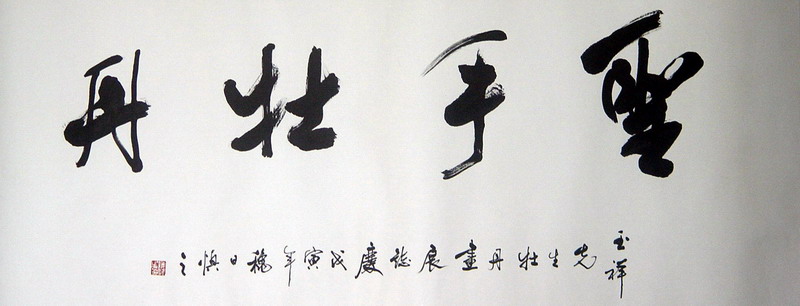 聖手牡丹
玉祥先生牡丹畫展誌慶戊寅年穐日慎之